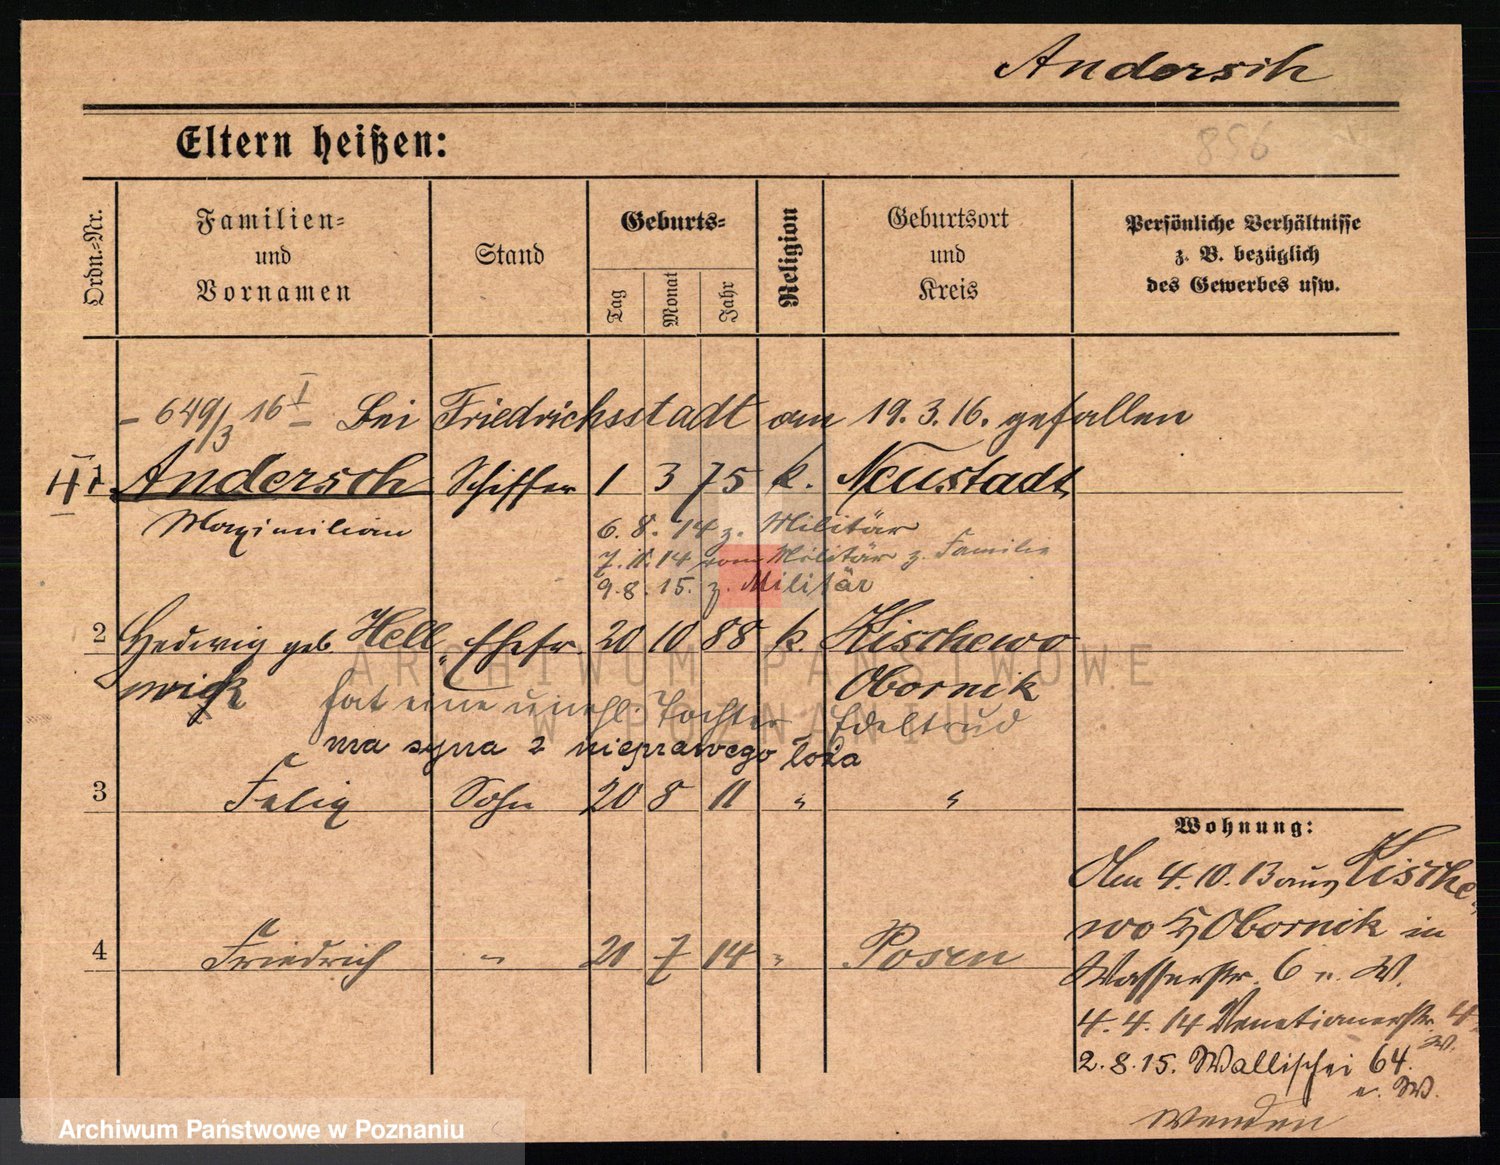 Andersch
856
Eltern heißen:
Ordn.-Nr.
Familien- und Vornamen
Stand
Geburts-
Tag
Monat
Jahr
Religion
Geburtsort und Kreis
Persönliche Verhältnisse z. B. bezüglich des Gewerbes usw.
- 649/3 16 I - Bei Friedrichsstadt am 19.3.16. gefallen
II 1 Andersch Schiffer 1 3 75 k. Neustadt
Maximilian
6. 8. 14 z. Militär
7. 11. 14 vom Militär z. Familie
9. 8. 15. z. Militär
2 Hedwig geb. Hell- Ehefr. 20 10 88 k. Kischewo
wick Obornik
hat eine unehl. Tochter Edeltrud
ma syna z nieprawego łoża
3 Felix Sohn 20 8 11 " "
4 Friedrich " 21 7 14 " Posen
Wohnung:
Den 4. 10. 13 aus Kische
wo Obornik in
Wasserstr. 6 u. W.
4. 4. 14 Venetianerstr. 4
W.
2. 8. 15. Wallischei 64.
u. W.
Wenden
ARCHIWUM PAŃSTWOWE
W POZNANIU
Archiwum Państwowe w Poznaniu